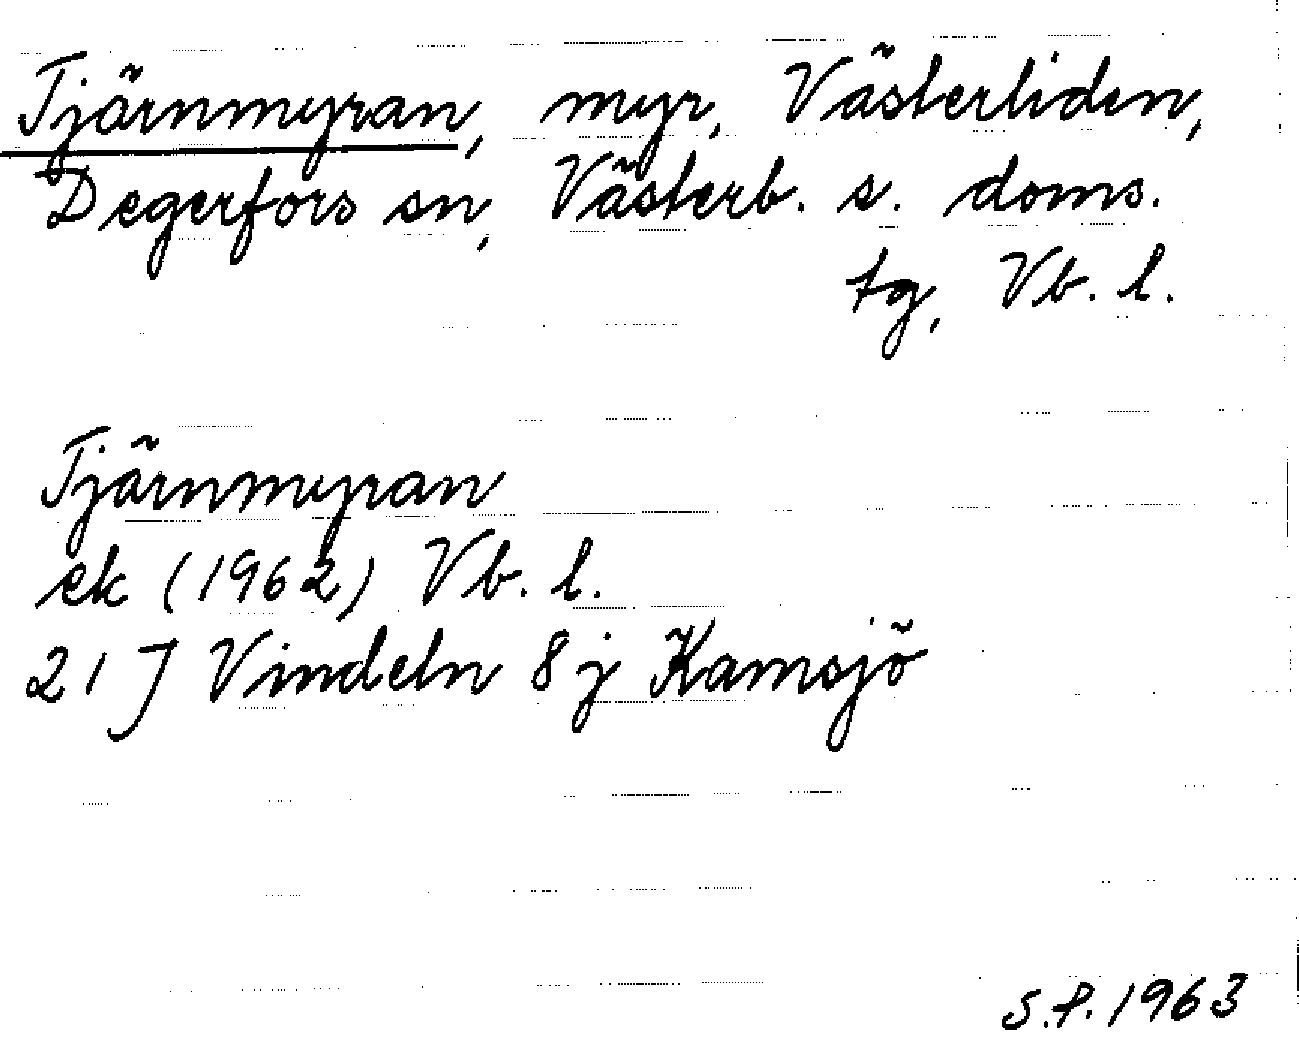 Tjärnmyran, myr, Västerliden,
Degerfors sn, Västerb. s. doms.
tg, Vb. l.
Tjärnmyran
ek (1962) Vb. l.
21 J Vindeln 8 j Kamsjö
S.P. 1963